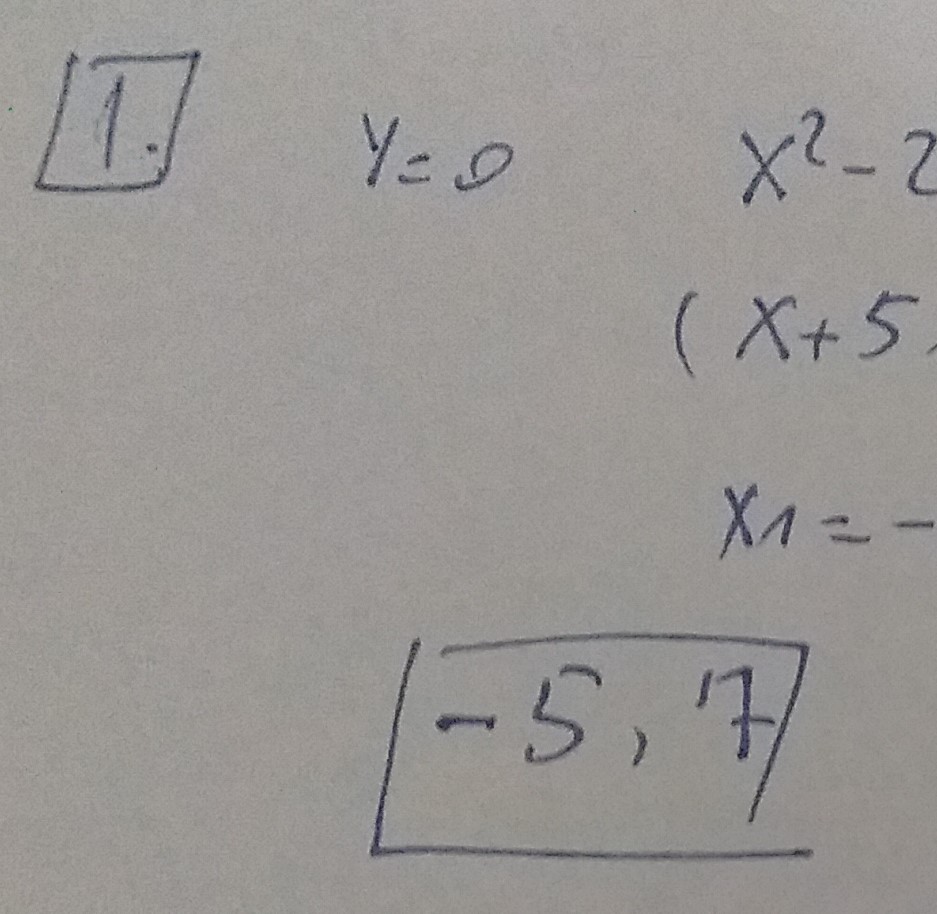 1. Y=0 X²-2
(X+5
X1=-
-5,7